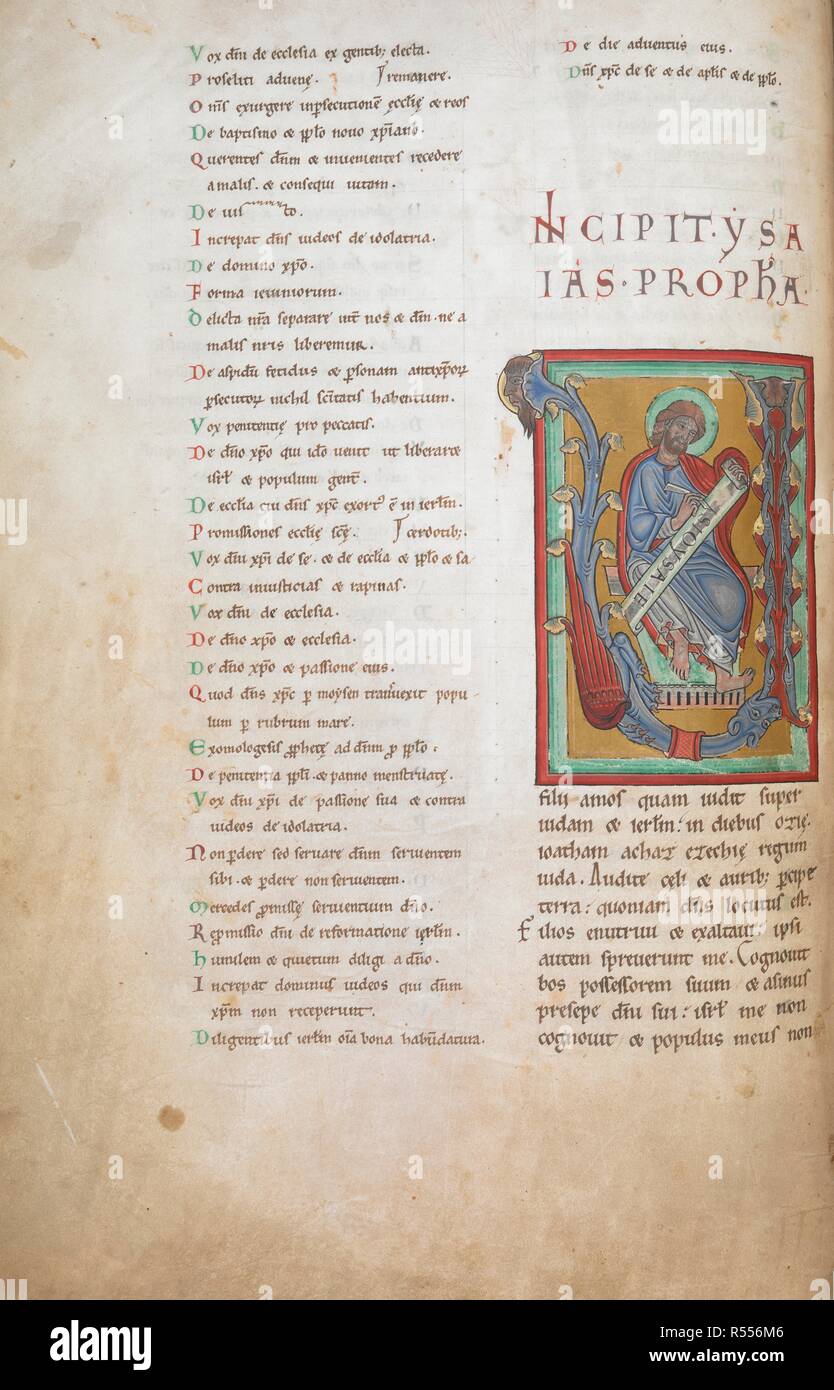 Vox dñi de ecclesia ex gentib; electa.
Proseliti advenę. remanere.
Om̅s exurgere in p̱secutionē ecclię & reos
De baptismo & pp̅lo novo xp̅iano.
Querentes dñm & invenientes recedere
a malis. & consequi vitam.
De
Increpat dñs iudeos de idolatria.
De domino xp̅o.
Forma ieiuniorum.
Delicta nr̅a separare int̅ nos & dñm. ne a
malis nr̅is liberemur.
De aspidū fetidus & p̱sonam antixp̅oꝝ
p̱secutoꝝ nichil sc̅itatis habentium.
Vox penitentię pro peccatis.
De dño xp̅o qui ideo venit ut liberaret
isrl̅ & populum gent̅.
De ecclia cui dñs xp̅c exort᷒ ē in ierlm̅.
Promissiones ecclię scę. cerdotib;.
Vox dñi xp̅i de se. & de ecclia & pp̅lo & sa
Contra iniusticias & rapinas.
Vox dñi de ecclesia.
De dño xp̅o & ecclesia.
De dño xp̅o & passione eius.
Quod dñs xp̅c p̱ moysen transvexit popu-
lum p̱ rubrum mare.
Exomologesis pp̅hetę ad dñm ꝓ pp̅lo:
De penitentia pp̅li. & panno menstruatę.
Vox dñi xp̅i de passione sua & contra
iudeos de idolatria.
Non p̱dere sed servare dñm servientem
sibi. & p̱dere non servientem.
Mercedes ꝓmissę servientium dño.
Rep̱missio dñi de reformatione ierlm̅.
Humilem & quietum diligi a dño.
Increpat dominus iudeos qui dñm
xp̅m non receperunt.
Diligentibus ierlm̅ oīa bona habundatura.
De die adventus eius.
Dñs xp̅c de se & de aplis & de pp̅lo.
INCIPIT·YSA
IAS·PROPHA
VISIO YSAIE
filii amos quam vidit super
iudam & ierlm̅: in diebus ozię.
ioatham achaz ezechię regum
iuda. Audite cęli & aurib; p̱cipe
terra: quoniam dñs locutus est.
Filios enutrivi & exaltavi: ipsi
autem spreverunt me. Cognovit
bos possessorem suum & asinus
presepe dñi sui: isrl̅ me non
cognovit & populus meus non
a alamy
alamy
Image ID: R556M6
www.alamy.com